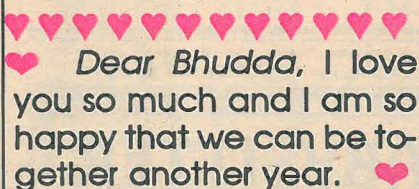 Dear Bhudda, I love
you so much and I am so
happy that we can be to-
gether another year.